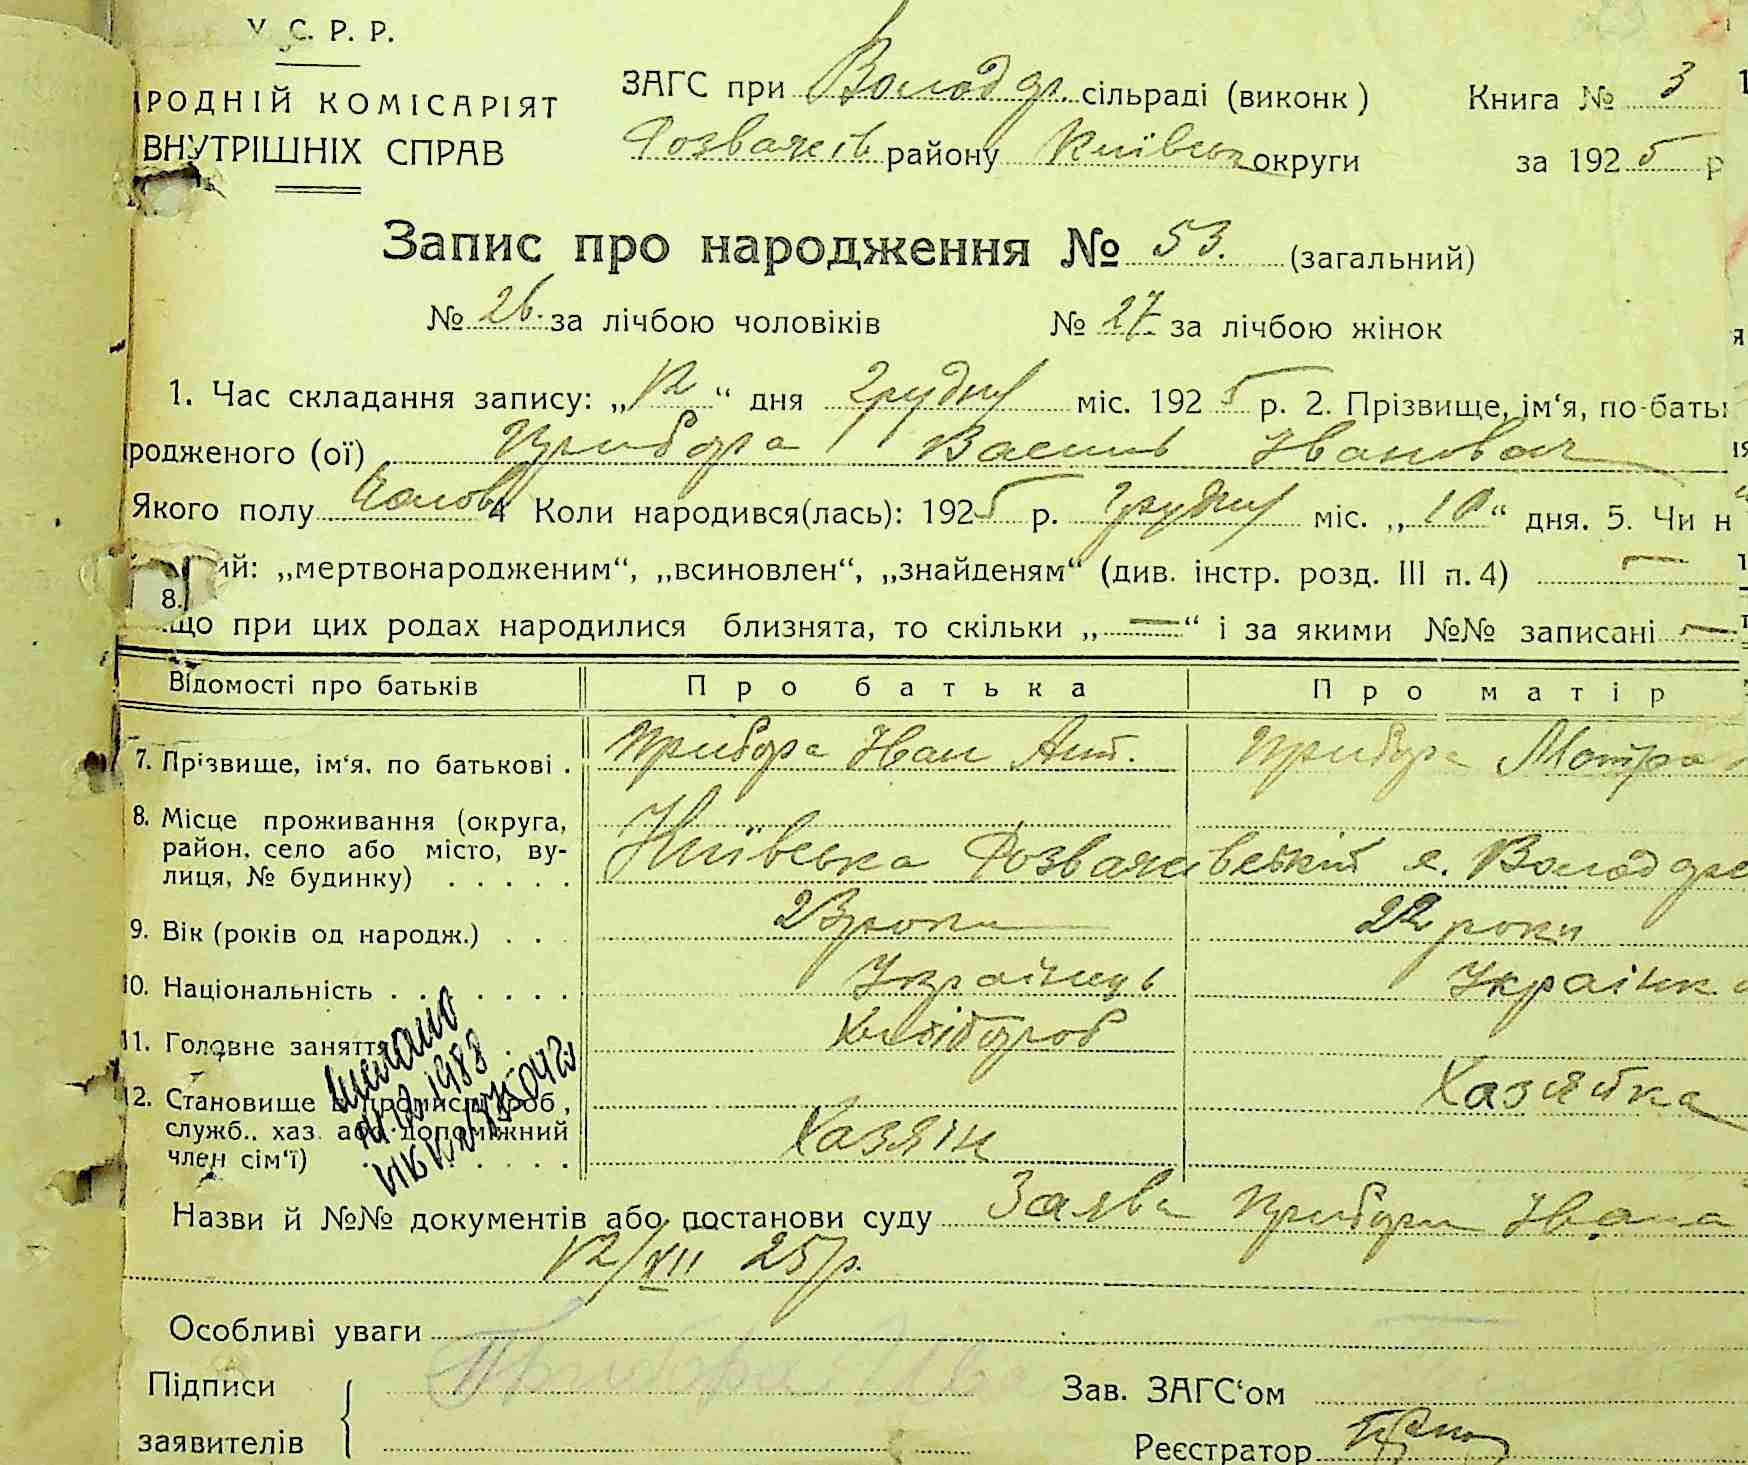 У. С. Р. Р.
РОДНІЙ КОМІСАРІЯТ
ВНУТРІШНІХ СПРАВ
ЗАГС при Володар. сільраді (виконк)
Розважів району Київськ округи
Книга № 3
за 1925 р
Запис про народження № 53. (загальний)
№ 26. за лічбою чоловіків № 27. за лічбою жінок
1. Час складання запису: „12“ дня Грудня міс. 1925 р. 2. Прізвище, ім‘я, по-баты
родженого (ої) Прибора Василь Іванович
Якого полу Чолов 4 Коли народився(лась): 1925 р. Грудня міс. „10“ дня. 5. Чи н
ий: „мертвонародженим“, „всиновлен“, „знайденям“ (див. інстр. розд. III п. 4) —
8.
що при цих родах народилися близнята, то скільки „—“ і за якими №№ записані —
Відомості про батьків Про батька Про матір
7. Прізвище, ім‘я, по батькові . Прибора Іван Ант. Прибора Мотра
8. Місце проживання (округа,
район, село або місто, ву-
лиця, № будинку) . . . . . Київська Розважівський с. Володарк
9. Вік (років од народж.) . . . 23 роки 22 роки
10. Національність . . . . . . . Українець Українк
11. Головне заняття Хлібороб
12. Становище в промислі (роб,
служб., хаз. або допоміжний
член сім‘ї) . . . . . Хазяін Хазяйка
1988
Назви й №№ документів або постанови суду Заява Прибори Івана
12/XII 25 р.
Особливі уваги
Підписи
заявителів
Прибора Іва
Зав. ЗАГС‘ом
Реєстратор